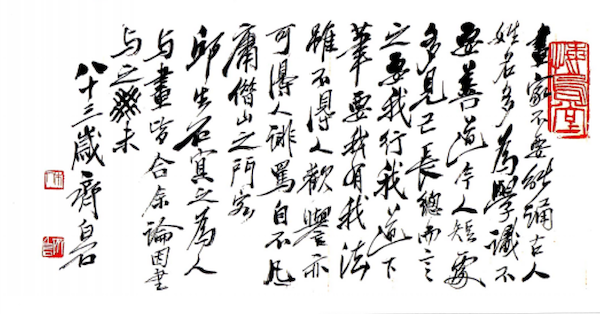 悔烏堂
畫家不要能誦古人
姓名多為學識不
要善道今人短處
多見己長總而言
之要我行我道下
筆要我有我法
雖不得人歡譽亦
可得人誹罵自不凡
庸借山之門客
邱生石冥之為人
与畫皆合余論因書
与之癸未
八十三歲齊白石